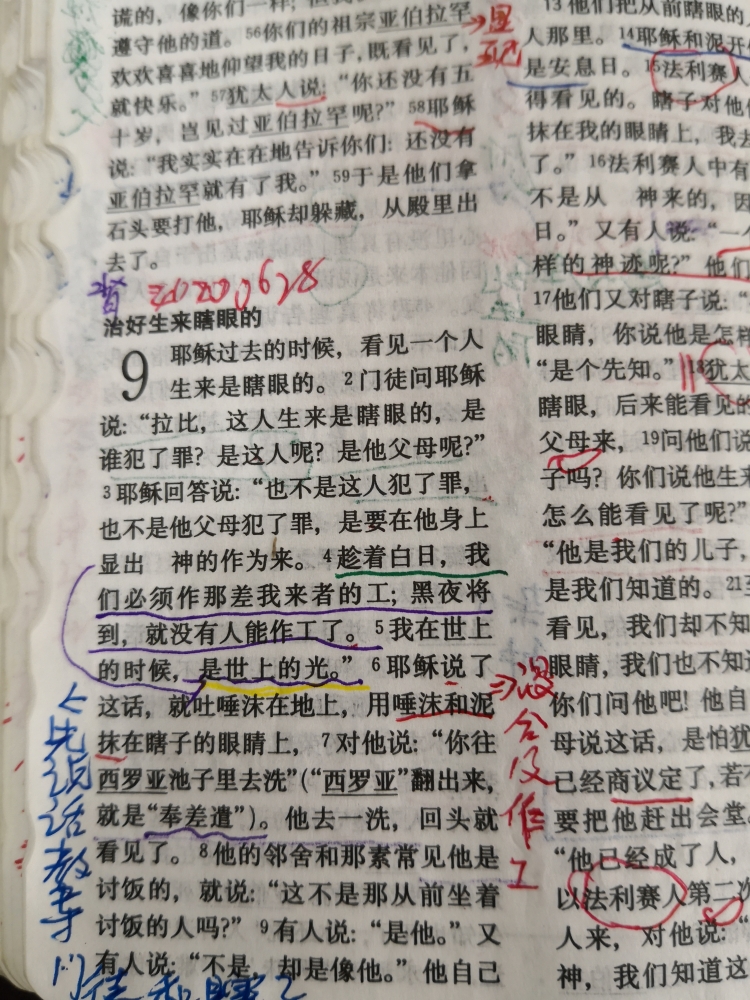 谎的，像你们一样；但我
遵守他的道。56你们的祖宗亚伯拉罕
欢欢喜喜地仰望我的日子，既看见了，
就快乐。”57犹太人说：“你还没有五
十岁，岂见过亚伯拉罕呢？”58耶稣
说：“我实实在在地告诉你们：还没有
亚伯拉罕就有了我。”59于是他们拿
石头要打他，耶稣却躲藏，从殿里出
去了。
20200628
治好生来瞎眼的
9 耶稣过去的时候，看见一个人
生来是瞎眼的。2门徒问耶稣
说：“拉比，这人生来是瞎眼的，是
谁犯了罪？是这人呢？是他父母呢？”
3耶稣回答说：“也不是这人犯了罪，
也不是他父母犯了罪，是要在他身上
显出 神的作为来。4趁着白日，我
们必须作那差我来者的工；黑夜将
到，就没有人能作工了。5我在世上
的时候，是世上的光。”6耶稣说了
这话，就吐唾沫在地上，用唾沫和泥
抹在瞎子的眼睛上，7对他说：“你往
西罗亚池子里去洗”（“西罗亚”翻出来，
就是“奉差遣”）。他去一洗，回头就
看见了。8他的邻舍和那素常见他是
讨饭的，就说：“这不是那从前坐着
讨饭的人吗？”9有人说：“是他。”又
有人说：“不是，却是像他。”他自己
先说话教导
门徒
13他们把从前瞎眼的
人那里。14耶稣和泥开
是安息日。15法利赛人
得看见的。瞎子对他
抹在我的眼睛上，我去
了。”16法利赛人中有
不是从 神来的，因
日。”又有人说：“一个
样的神迹呢？”他们
17他们又对瞎子说：“
眼睛，你说他是怎样
“是个先知。”18犹太
瞎眼，后来能看见的
父母来，19问他们说
子吗？你们说他生来
怎么能看见了呢？”
“他是我们的儿子，
是我们知道的。21至
看见，我们却不知
眼睛，我们也不知道
你们问他吧！他自
母说这话，是怕犹
已经商议定了，若
要把他赶出会堂。
“他已经成了人，
以法利赛人第二次
人来，对他说：“
神，我们知道这